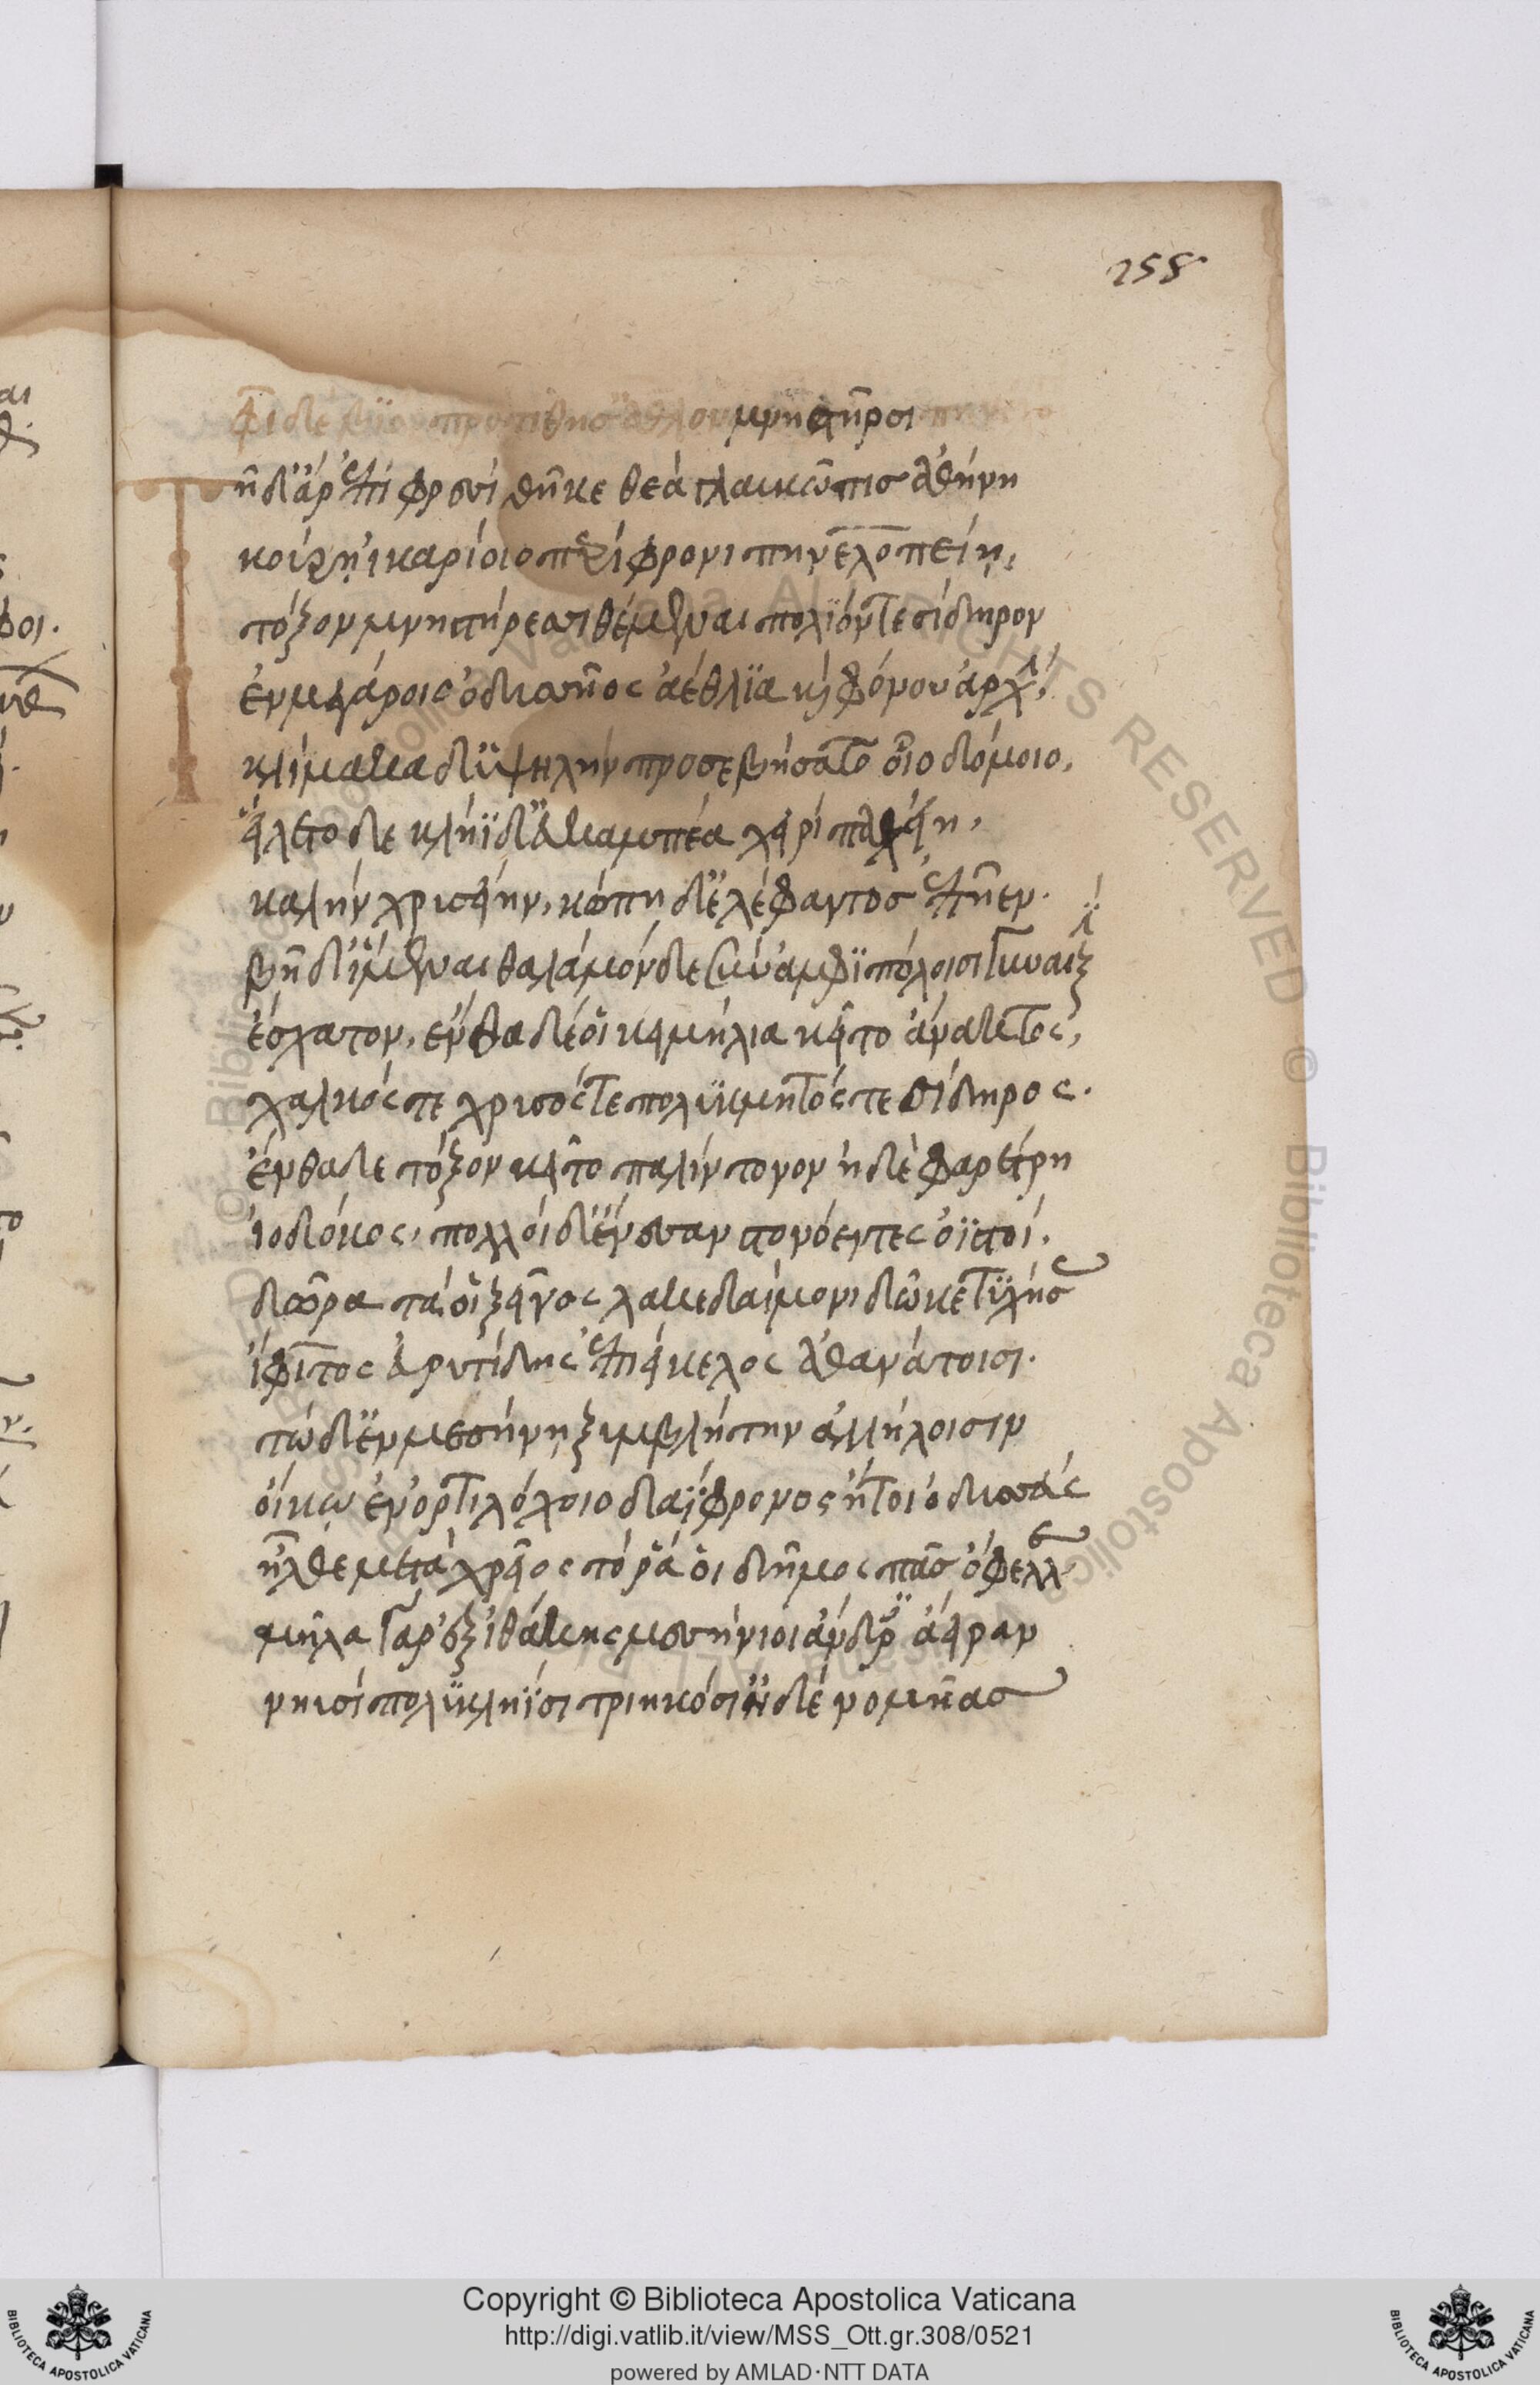 258
φὶ δὲ βϊὸν προτίθησ' ἄεθλον μνηστῆρσι πηνελο
ῆ δ' ἄρ' ἐπὶ φρεσὶ θῆκε θεὰ γλαυκῶπις ἀθήνη
κούρῃ ἰκαρίοιο περίφρονι πηνελοπείῃ,
τόξον μνηστήρεσσι θέμεναι πολϊόν τε σίδηρον
ἐν μεγάροις ὀδυσῆος ἀέθλϊα καὶ φόνου ἀρχήν,
κλίμακα δ' ὑψηλὴν προσεβήσατο οἷο δόμοιο,
εἵλετο δὲ κληῖδ' εὐκαμπέα χειρὶ παχείη,
καλὴν χρυσείην, κώπη δ' ἐλέφαντος ἐπῆεν.
βῆ δ' ἴμεναι θαλαμόνδε σὺν ἀμφϊπόλοισι γυναιξὶν
ἔσχατον, ἔνθα δέ οἱ κειμήλια κεῖτο ἄνακτος,
χαλκός τε χρυσός τε πολύκμητός τε σίδηρος.
ἔνθα δὲ τόξον κεῖτο παλίντονον ἠδὲ φαρέτρη
ἰοδόκος, πολλοὶ δ' ἔνεσαν στονόεντες ὀϊστοί.
δῶρα τά οἱ ξεῖνος λακεδαίμονι δῶκε τυχήσας
ἴφιτος εὐρυτίδης ἐπιείκελος ἀθανάτοισι.
τὼ δ' ἐν μεσήνῃ ξυμβλήτην ἀλλήλοισιν
οἴκω ἐν ὀρτιλόχοιο δαΐφρονος ἤτοι ὀδυσσεὺς
ἦλθε μετὰ χρεῖος τό ῥά οἱ δῆμος πᾶς ὄφελλεν
μῆλα γὰρ ἐξ ἰθάκης μεσήνιοι ἄνδρες ἄειραν
νηυσὶ πολυκλήϊσι τριηκόσι' ἠδὲ νομῆας
Copyright © Biblioteca Apostolica Vaticana
http://digi.vatlib.it/view/MSS_Ott.gr.308/0521
powered by AMLAD·NTT DATA